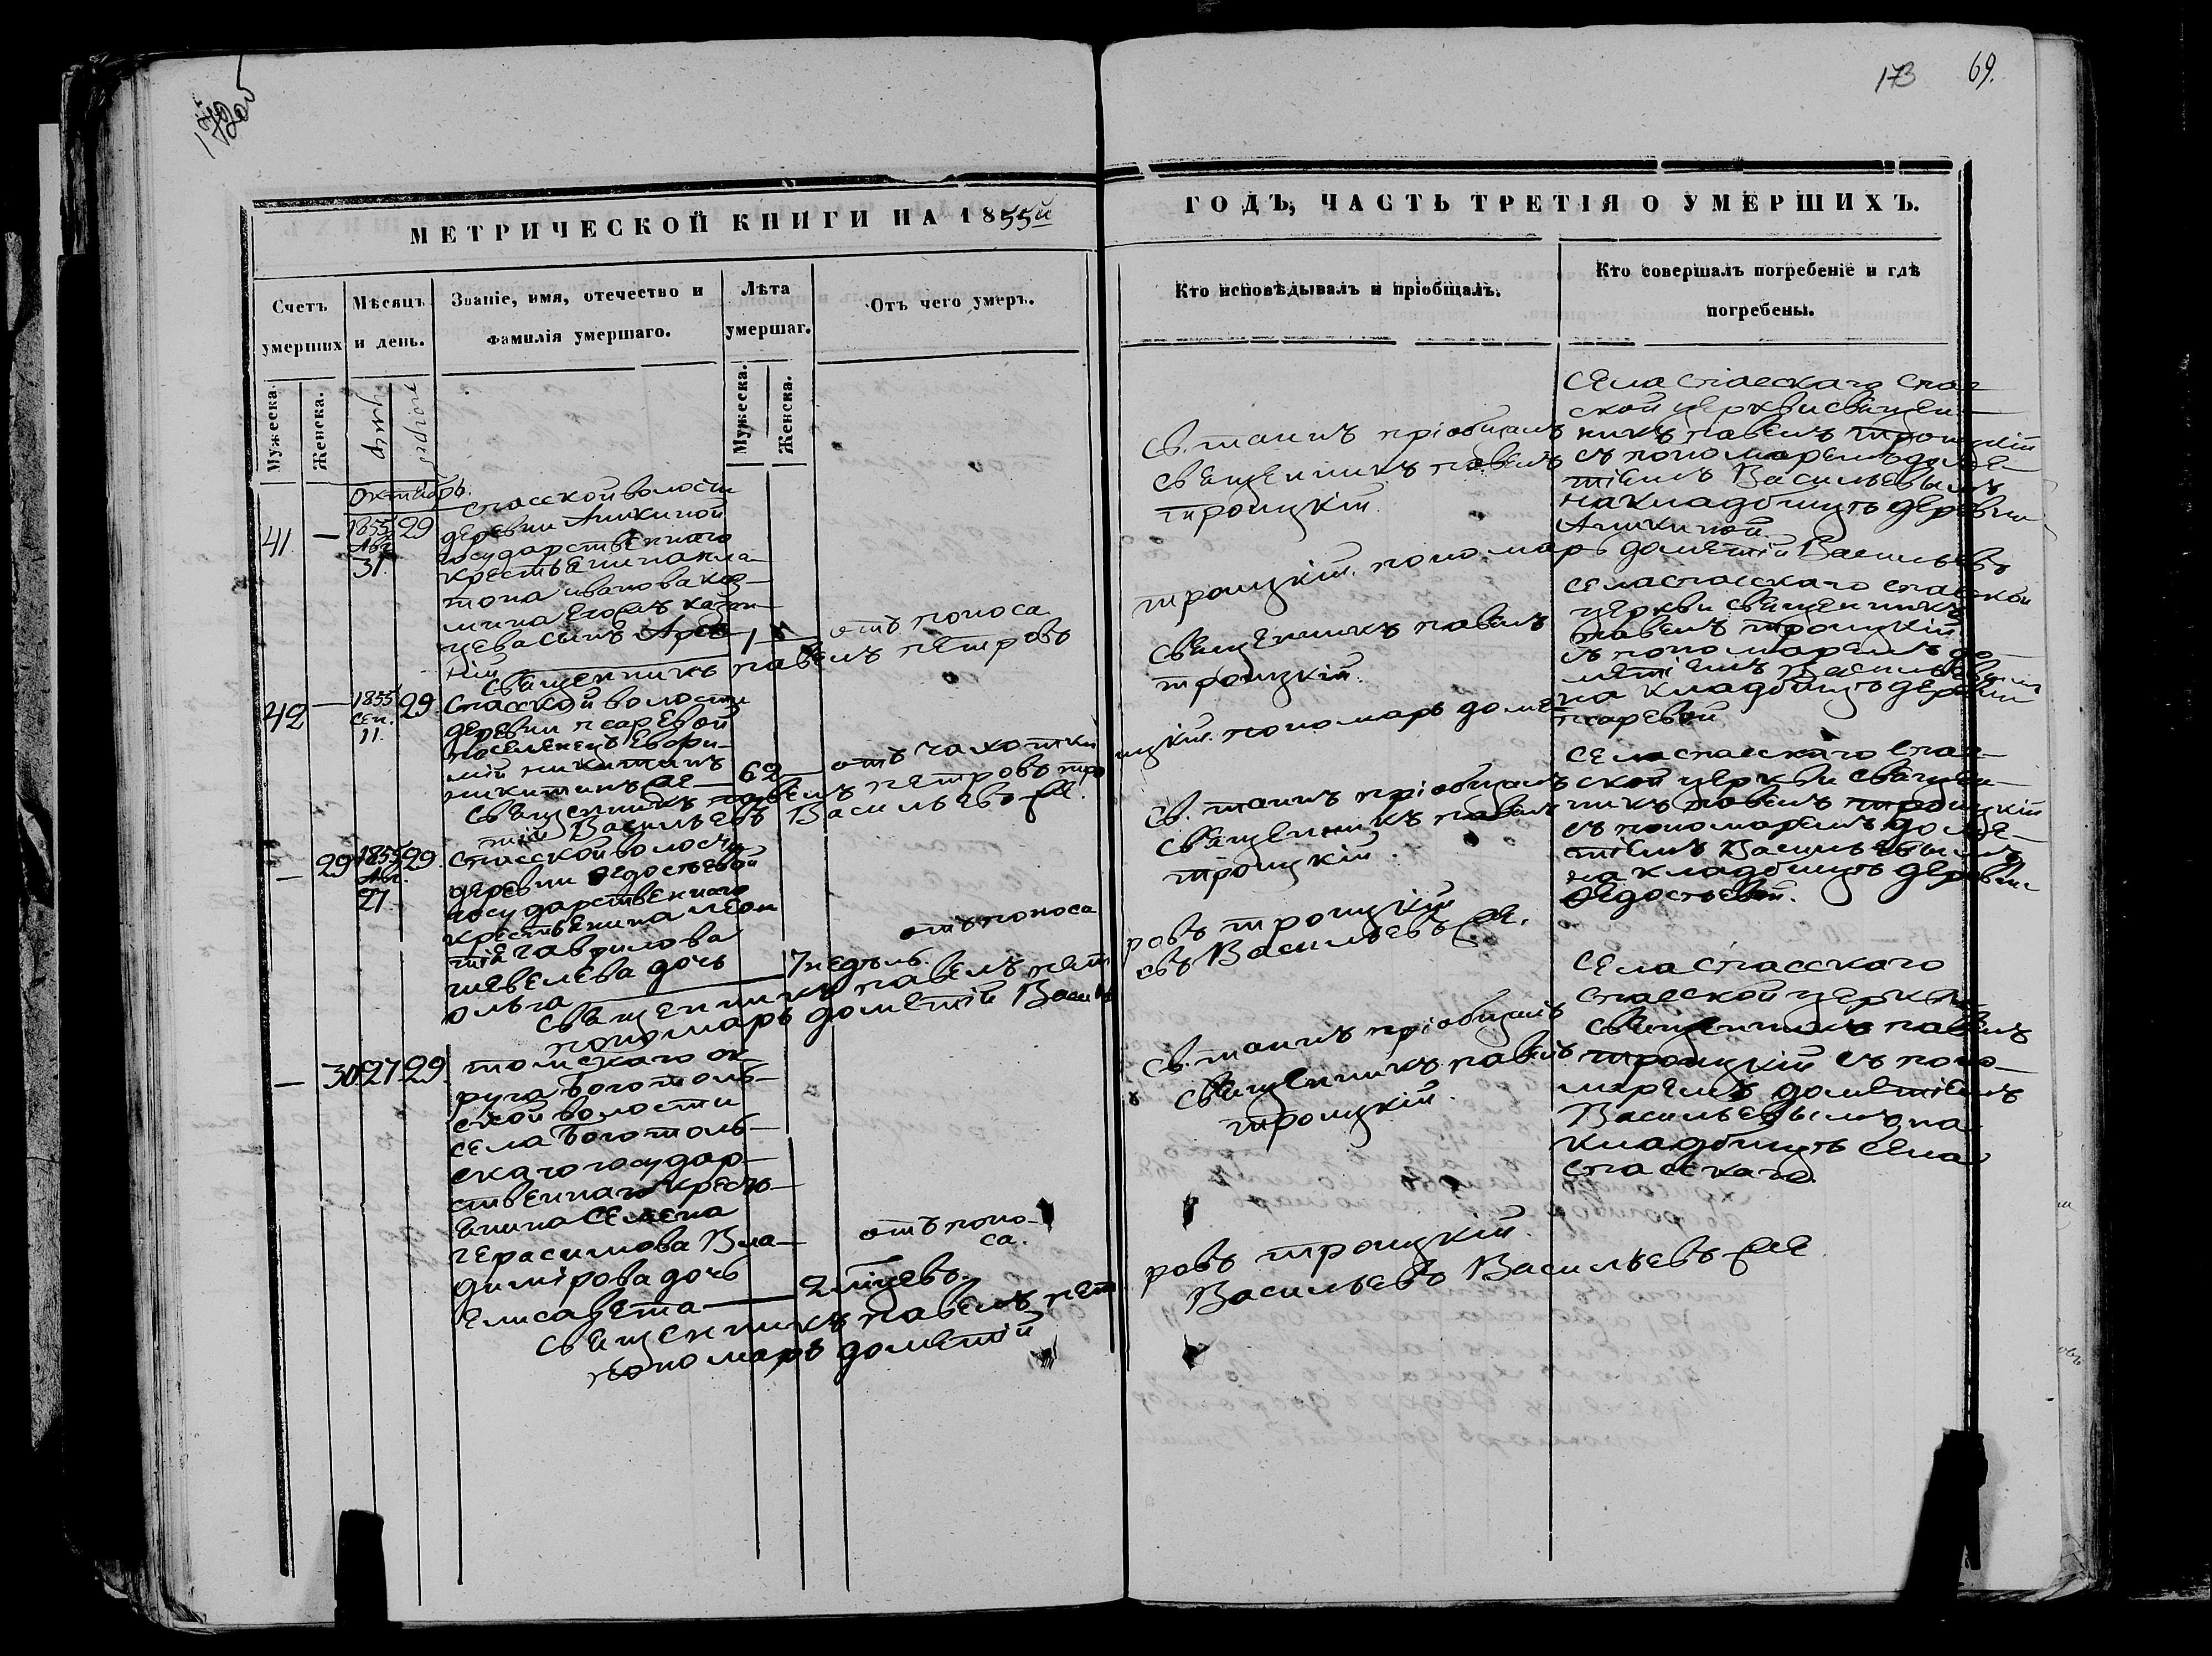 173 69.
МЕТРИЧЕСКОЙ КНИГИ НА 1855й
ГОДЪ, ЧАСТЬ ТРЕТІЯ О УМЕРШИХЪ.
Счетъ умерших
Мѣсяцъ и день.
Званіе, имя, отечество и
Фамилія умершаго.
Лѣта
умершаг.
Отъ чего умеръ.
Кто исповѣдывалъ и пріобщалъ.
Кто совершалъ погребеніе и гдѣ
погребены.
Мужеска.
Женска.
Мужеска.
Женска.
Октябрь.
41. — 1855 Авг. 31. 29
спасской волости
деревни Аникиной
государственнаго
крестьянина пла-
тона иванова коз-
мина
цева сынъ Арсе-
ній
1
отъ поноса
священникъ павелъ петровъ
троицкій. пономарь дометій Васильевъ
св. таинъ пріобщалъ
священникъ павелъ
троицкій.
Села спасскаго спас-
ской церкви священ-
никъ павелъ троицкій
съ пономаремъ доме-
тіемъ Васильевымъ
на кладбищѣ деревни
Аникиной.
42 — 1855 Сен. 11. 29.
Спасской волости
деревни псаревой
поселенецъ Евфи-
мій никитинъ
62
отъ чахотки
священникъ павелъ петровъ тро
ицкій. пономарь доме-
тій Васильевъ Васильевъ
священникъ павелъ
троицкій.
села спасскаго спасской
церкви священникъ
павелъ троицкій
съ пономаремъ до-
метіемъ Васильевымъ
на кладбищѣ деревни
псаревой
— 29 1855 Авг. 27. 29.
Спасской волости
деревни Федосѣевой
государственнаго
крестьянина леон
тія гаврилова
шевелева дочь
ольга
7 недѣль.
отъ поноса
священникъ павелъ пет
ровъ троицкій
пономарь дометій Васил
евъ Васильевъ
св. таинъ пріобщалъ
священникъ павелъ
троицкій.
села спасскаго спас-
ской церкви священ-
никъ павелъ троицкій
съ пономаремъ доме-
тіемъ Васильевымъ
на кладбищѣ деревни
Федосѣевой.
— 30 27. 29.
томскаго ок
руга Боготоль-
ской волости
села Боготоль-
скаго государ-
ственнаго кресть-
янина Семена
герасимова Вла-
димірова дочь
Елисавета
2 мѣсяцевъ.
отъ поно-
са.
священникъ павелъ пет
ровъ троицкій.
пономарь дометій
Васильевъ Васильевъ
св. таинъ пріобщалъ
священникъ павелъ
троицкій.
села спасскаго
спасской церкви
священникъ павелъ
троицкій съ поно-
маремъ дометіемъ
Васильевымъ на
кладбищѣ села
спасскаго.